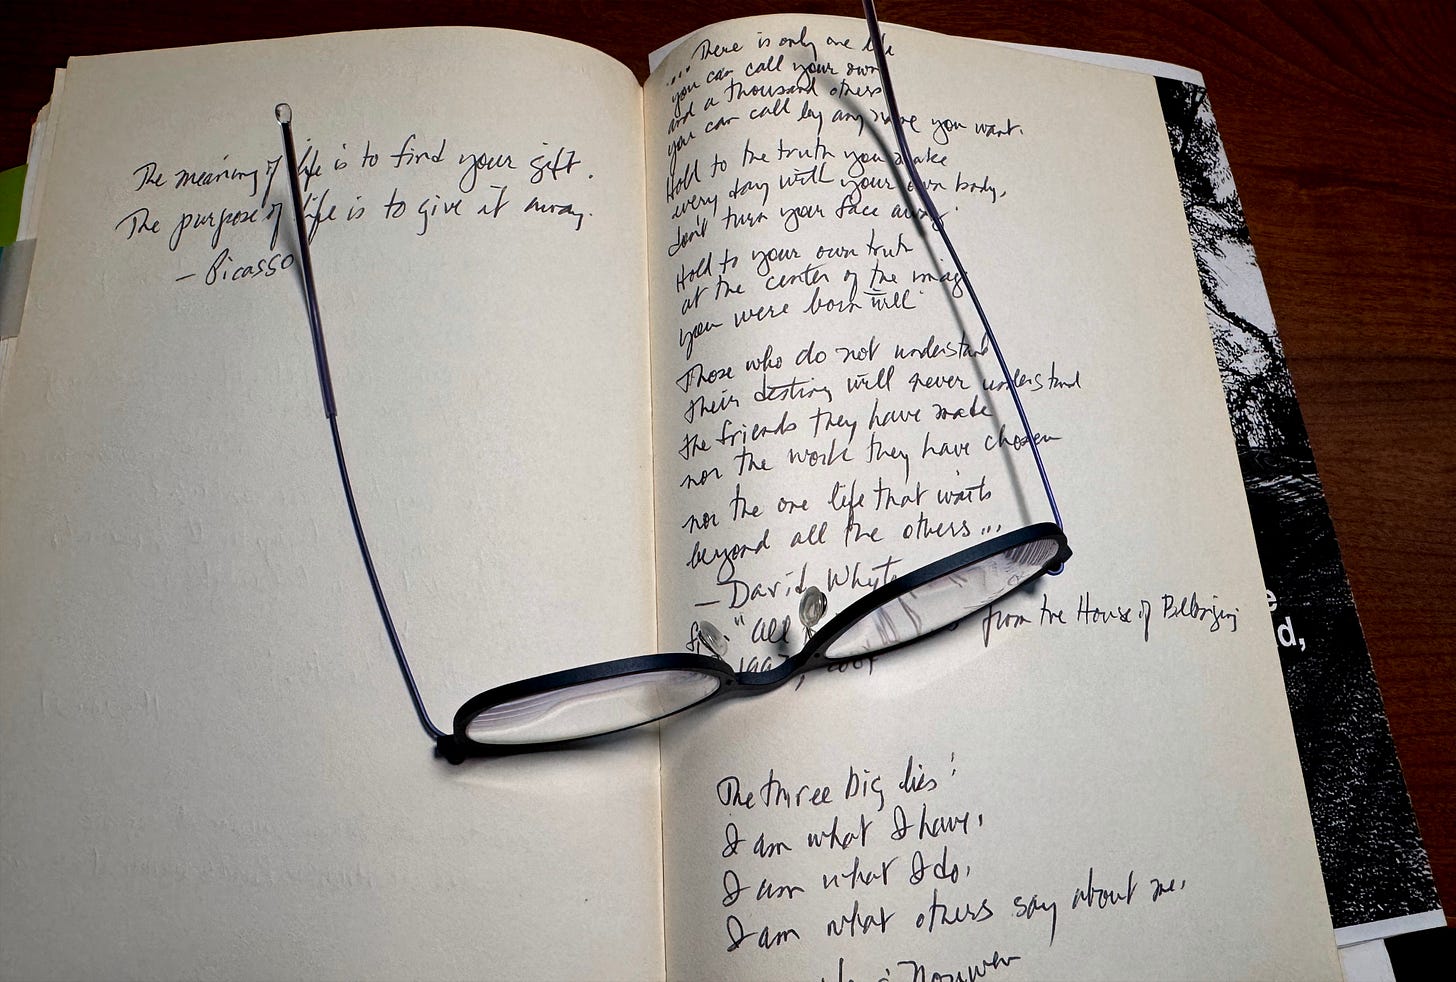 The meaning of life is to find your gift.
The purpose of life is to give it away.
— Picasso
... There is only one life
you can call your own
and a thousand others
you can call by any name you want.
Hold to the truth you make
every day with your own body,
don't turn your face away.
Hold to your own truth
at the center of the image
you were born with
Those who do not understand
their destiny will never understand
the friends they have made
nor the work they have chosen
nor the one life that waits
beyond all the others...
— David Whyte
"All from the House of Belonging
The three big lies:
I am what I have.
I am what I do.
I am what others say about me.
Nouwen
d,